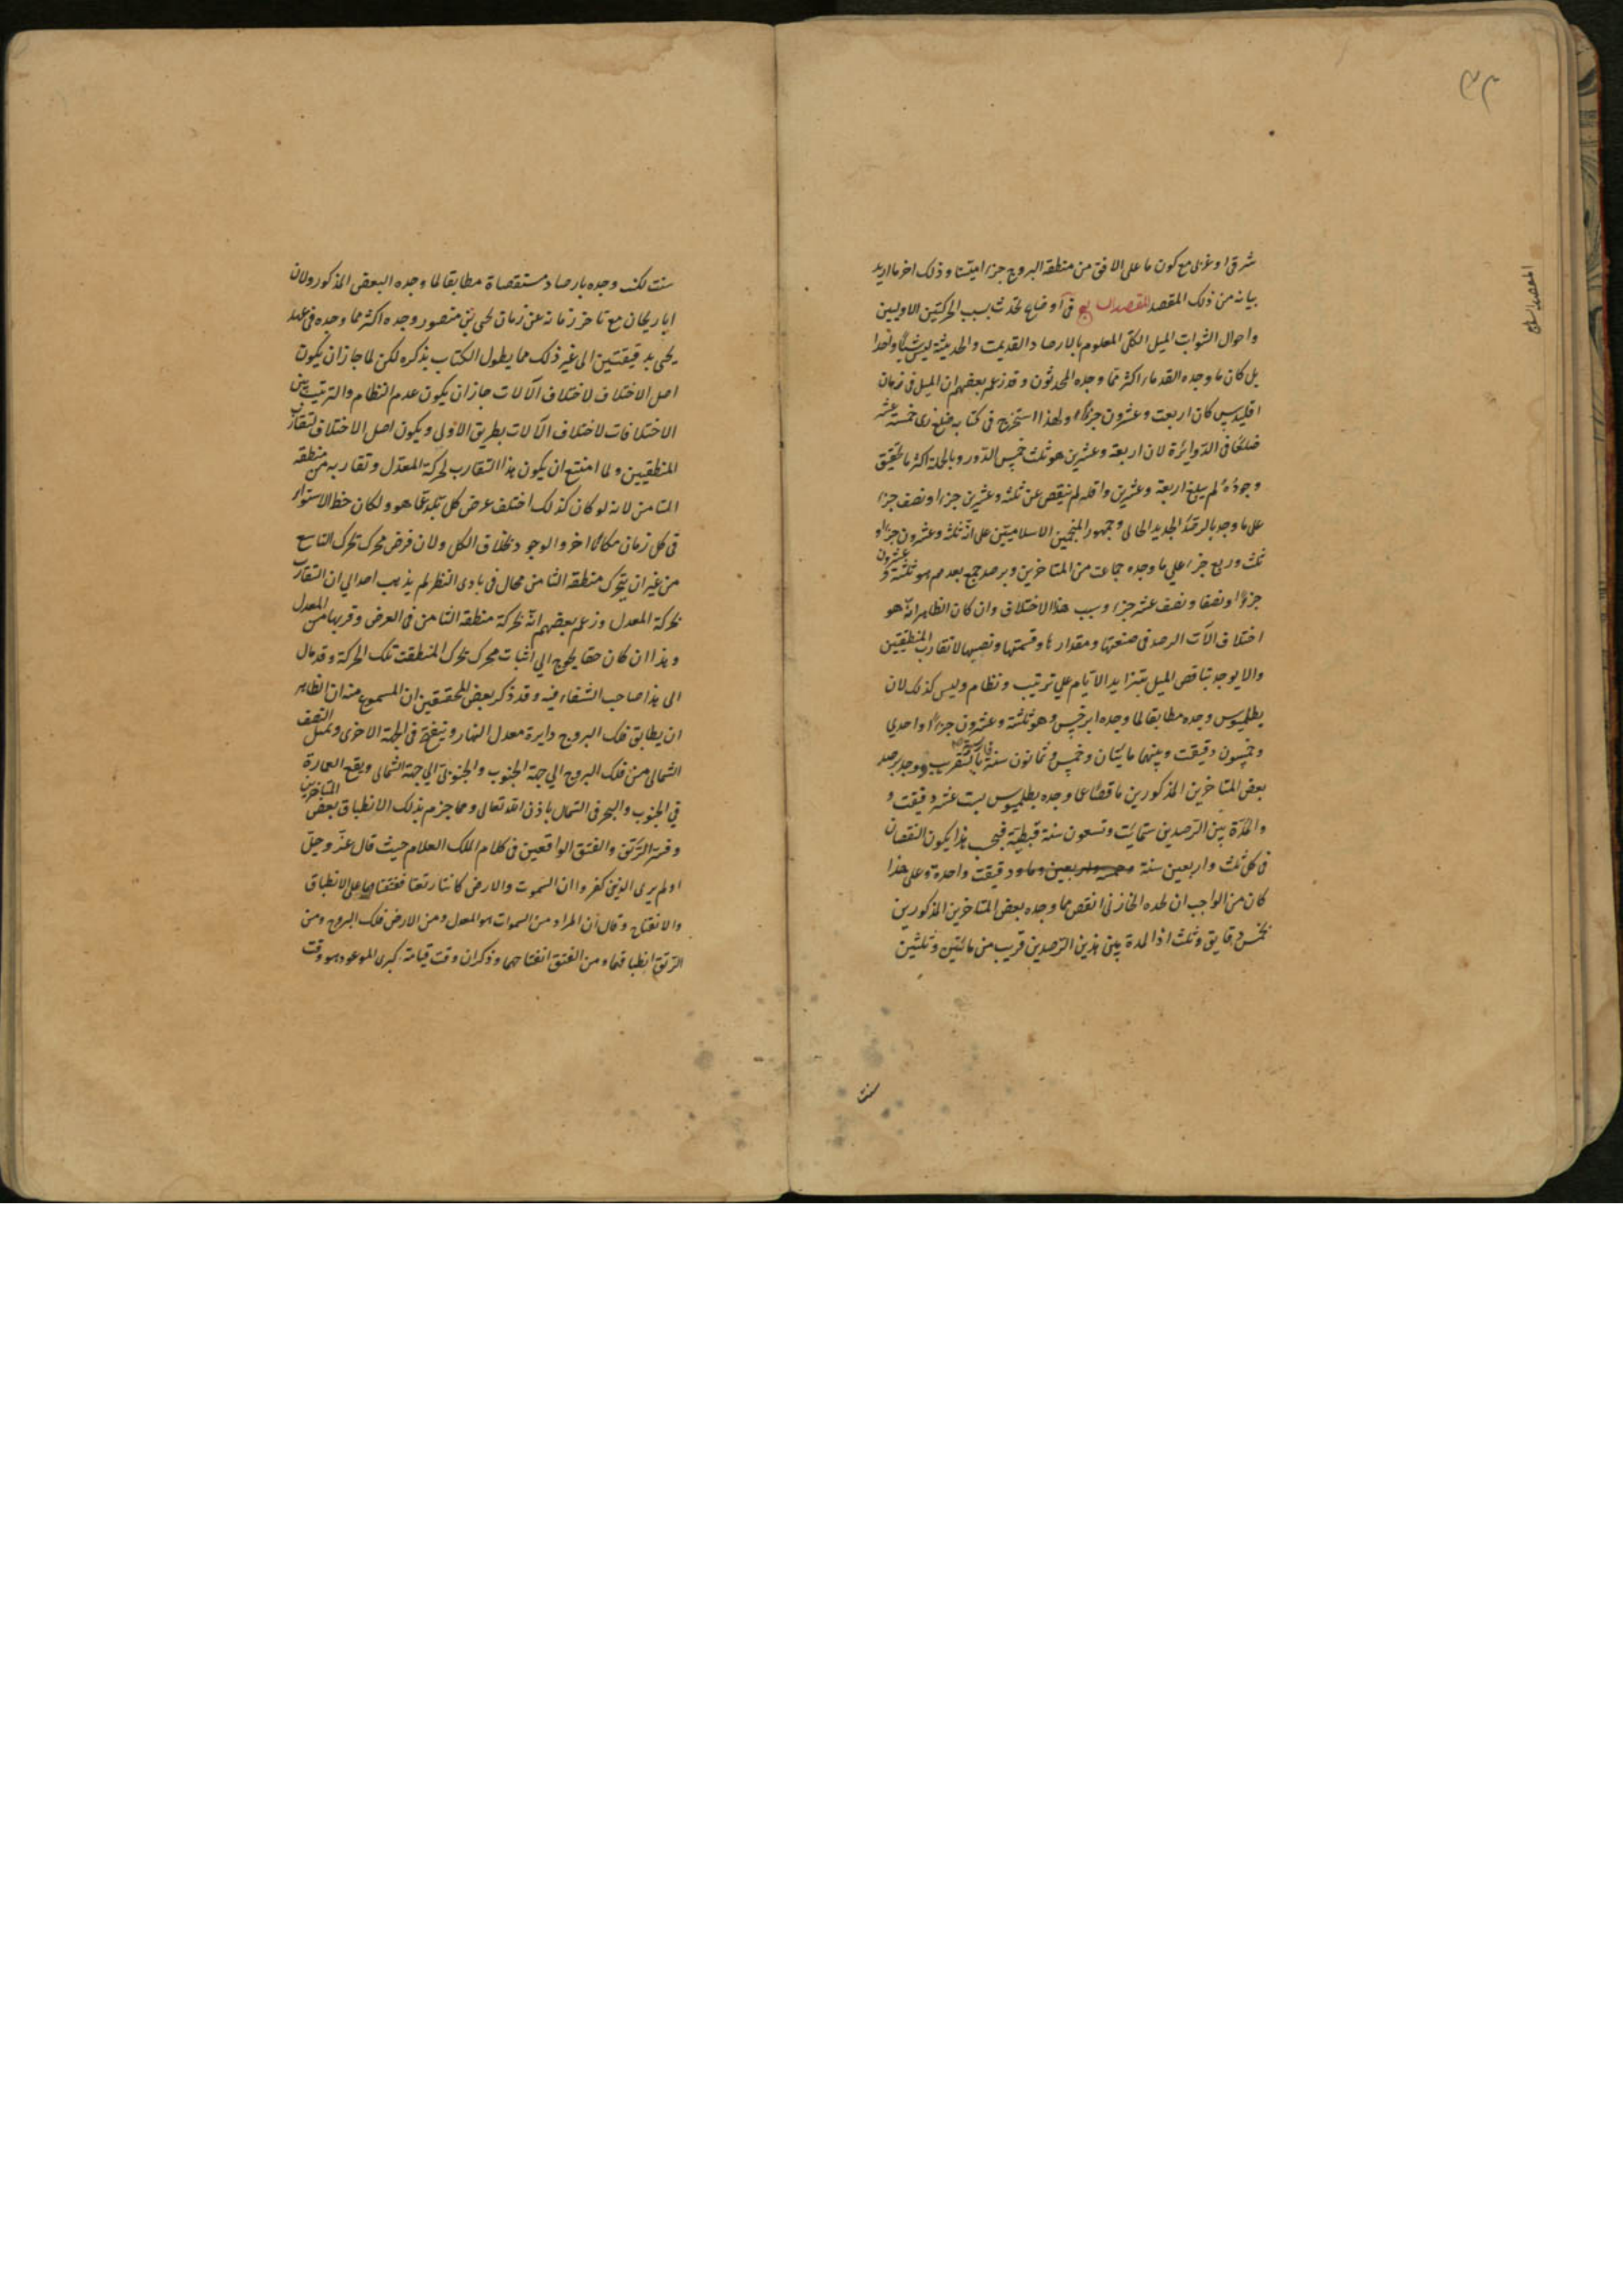 ٣٣
المقصد السابع
شرقيا او غربى مع كون ما على الافق من منطقة البروج جزءا معينا وذلك اخر ما اريد
بيانه من ذلك المقصد المقصد السابع فى اوضاع تحدث بسبب الحركتين الاوليين
واحوال الثوابت الميل الكلى المعلوم بالارصاد القديمة والحديثة ليس شيئا واحدا
بل كان ما وجده القدماء اكثر مما وجده المحدثون وقد زعم بعضهم ان الميل فى زمان
اقليدس كان اربعة وعشرون جزءا ولهذا استخرج فى كتابه ضلع ذى خمسة عشر
ضلعا فى الدوائرة لان اربعة وعشرين هو ثلث خمس الدور وبالجملة اكثر ما تحقق
وجوده لم يبلغ اربعة وعشرين واقله لم ينقص عن ثلثة وعشرين جزءا ونصف جزء
على ما وجد بالرصد الجديد الحالى وجمهور المنجمين الاسلاميين على انه ثلثة وعشرون جزءا و
ثلث وربع جزء على ما وجده جماعت من المتاخرين وبرصد جمع بعدهم هو ثلثة وعشرون
جزؤا ونصفا ونصف عشر جزء وسبب هذا الاختلاف وان كان الظاهر انه هو
اختلاف الآت الرصد فى صنعتها ومقدارها وقسمتها ونصبها لا تقارب المنطقتين
والا يوجد تناقص الميل بتزايد الايام على ترتيب ونظام وليس كذلك لان
بطلميوس وجده مطابقا لما وجده ابرخس وهو ثلثة وعشرون جزءا واحدي
وخمسون دقيقت وبينهما مايتان وخمس وثمانون سنة بالتقريب ووجد برصد
بعض المتاخرين المذكورين ناقصا عما وجده بطلميوس بست عشر دقيقت و
والمدة بين الرصدين ستمايت وتسعون سنة قبطية فبحسب هذا يكون النقصان
فى كل ثلث واربعين سنة دقيقت واحدة وعلى هذا
كان من الواجب ان يجده الخازنى انقص مما وجده بعض المتاخرين المذكورين
بخمس دقايق وثلث اذ المدة بين هذين الرصدين قريب من مائتين وثلثين
سنت
سنت لكنه وجده بارصاد مستقصاة مطابقا لما وجده البعض المذكور ولان
اباريحان مع تاخر زمانه عن زمان يحى بن منصور وجده اكثر مما وجده فى عهد
يحى بدقيقتين الى غير ذلك مما يطول الكتاب بذكره لكن لما جاز ان يكون
اصل الاختلاف لاختلاف الآلات جاز ان يكون عدم النظام والترتيب بين
الاختلافات لاختلاف الآلات بطريق الاولى ويكون اصل الاختلاف لتقارب
المنطقتين ولما امتنع ان يكون هذا التقارب لحركة المعدل وتقاربه من منطقة
الثامن لانه لو كان كذلك اختلف عرض كل بلد عما هو ولكان خط الاستواء
فى كل زمان مكانا اخر والوجود بخلاف الكل ولان فرض محرك تحرك التاسع
من غير ان يتحرك منطقة الثامن محال فى بادى النظر لم يذهب احد الى ان التقارب
لحركة المعدل وزعم بعضهم انه لحركة منطقة الثامن فى العرض وقربها من المعدل
وهذا ان كان حقا يحوج الي اثبات محرك تحرك المنطقت تلك الحركة وقد مال
الى هذا صاحب الشفاء فيه وقد ذكر بعض المحققين ان المسموع منه ان الظاهر
ان يطابق فلك البروج دايرة معدل النهار وينفتح فى الجهة الاخرى ويميل النصف
الشمالى من فلك البروج الى جهة الجنوب والجنوبى الى جهة الشمالى ويقع العمارة
فى الجنوب والبحر فى الشمال باذن الله تعالى ومما جزم بذلك الانطباق بعض المتاخرين
وفسر الرتق والفتق الواقعين فى كلام الملك العلام حيث قال عز وجل
اولم يرى الذين كفروا ان السموت والارض كانتا رتقا ففتقناهما على الانطباق
والانفتاح وقال ان المراد من السموات هو المعدل ومن الارض فلك البروج ومن
الرتق انطباقهما ومن الفتق انفتاحهما وذكر ان وقت قيامة كبرى الموعود هو وقت